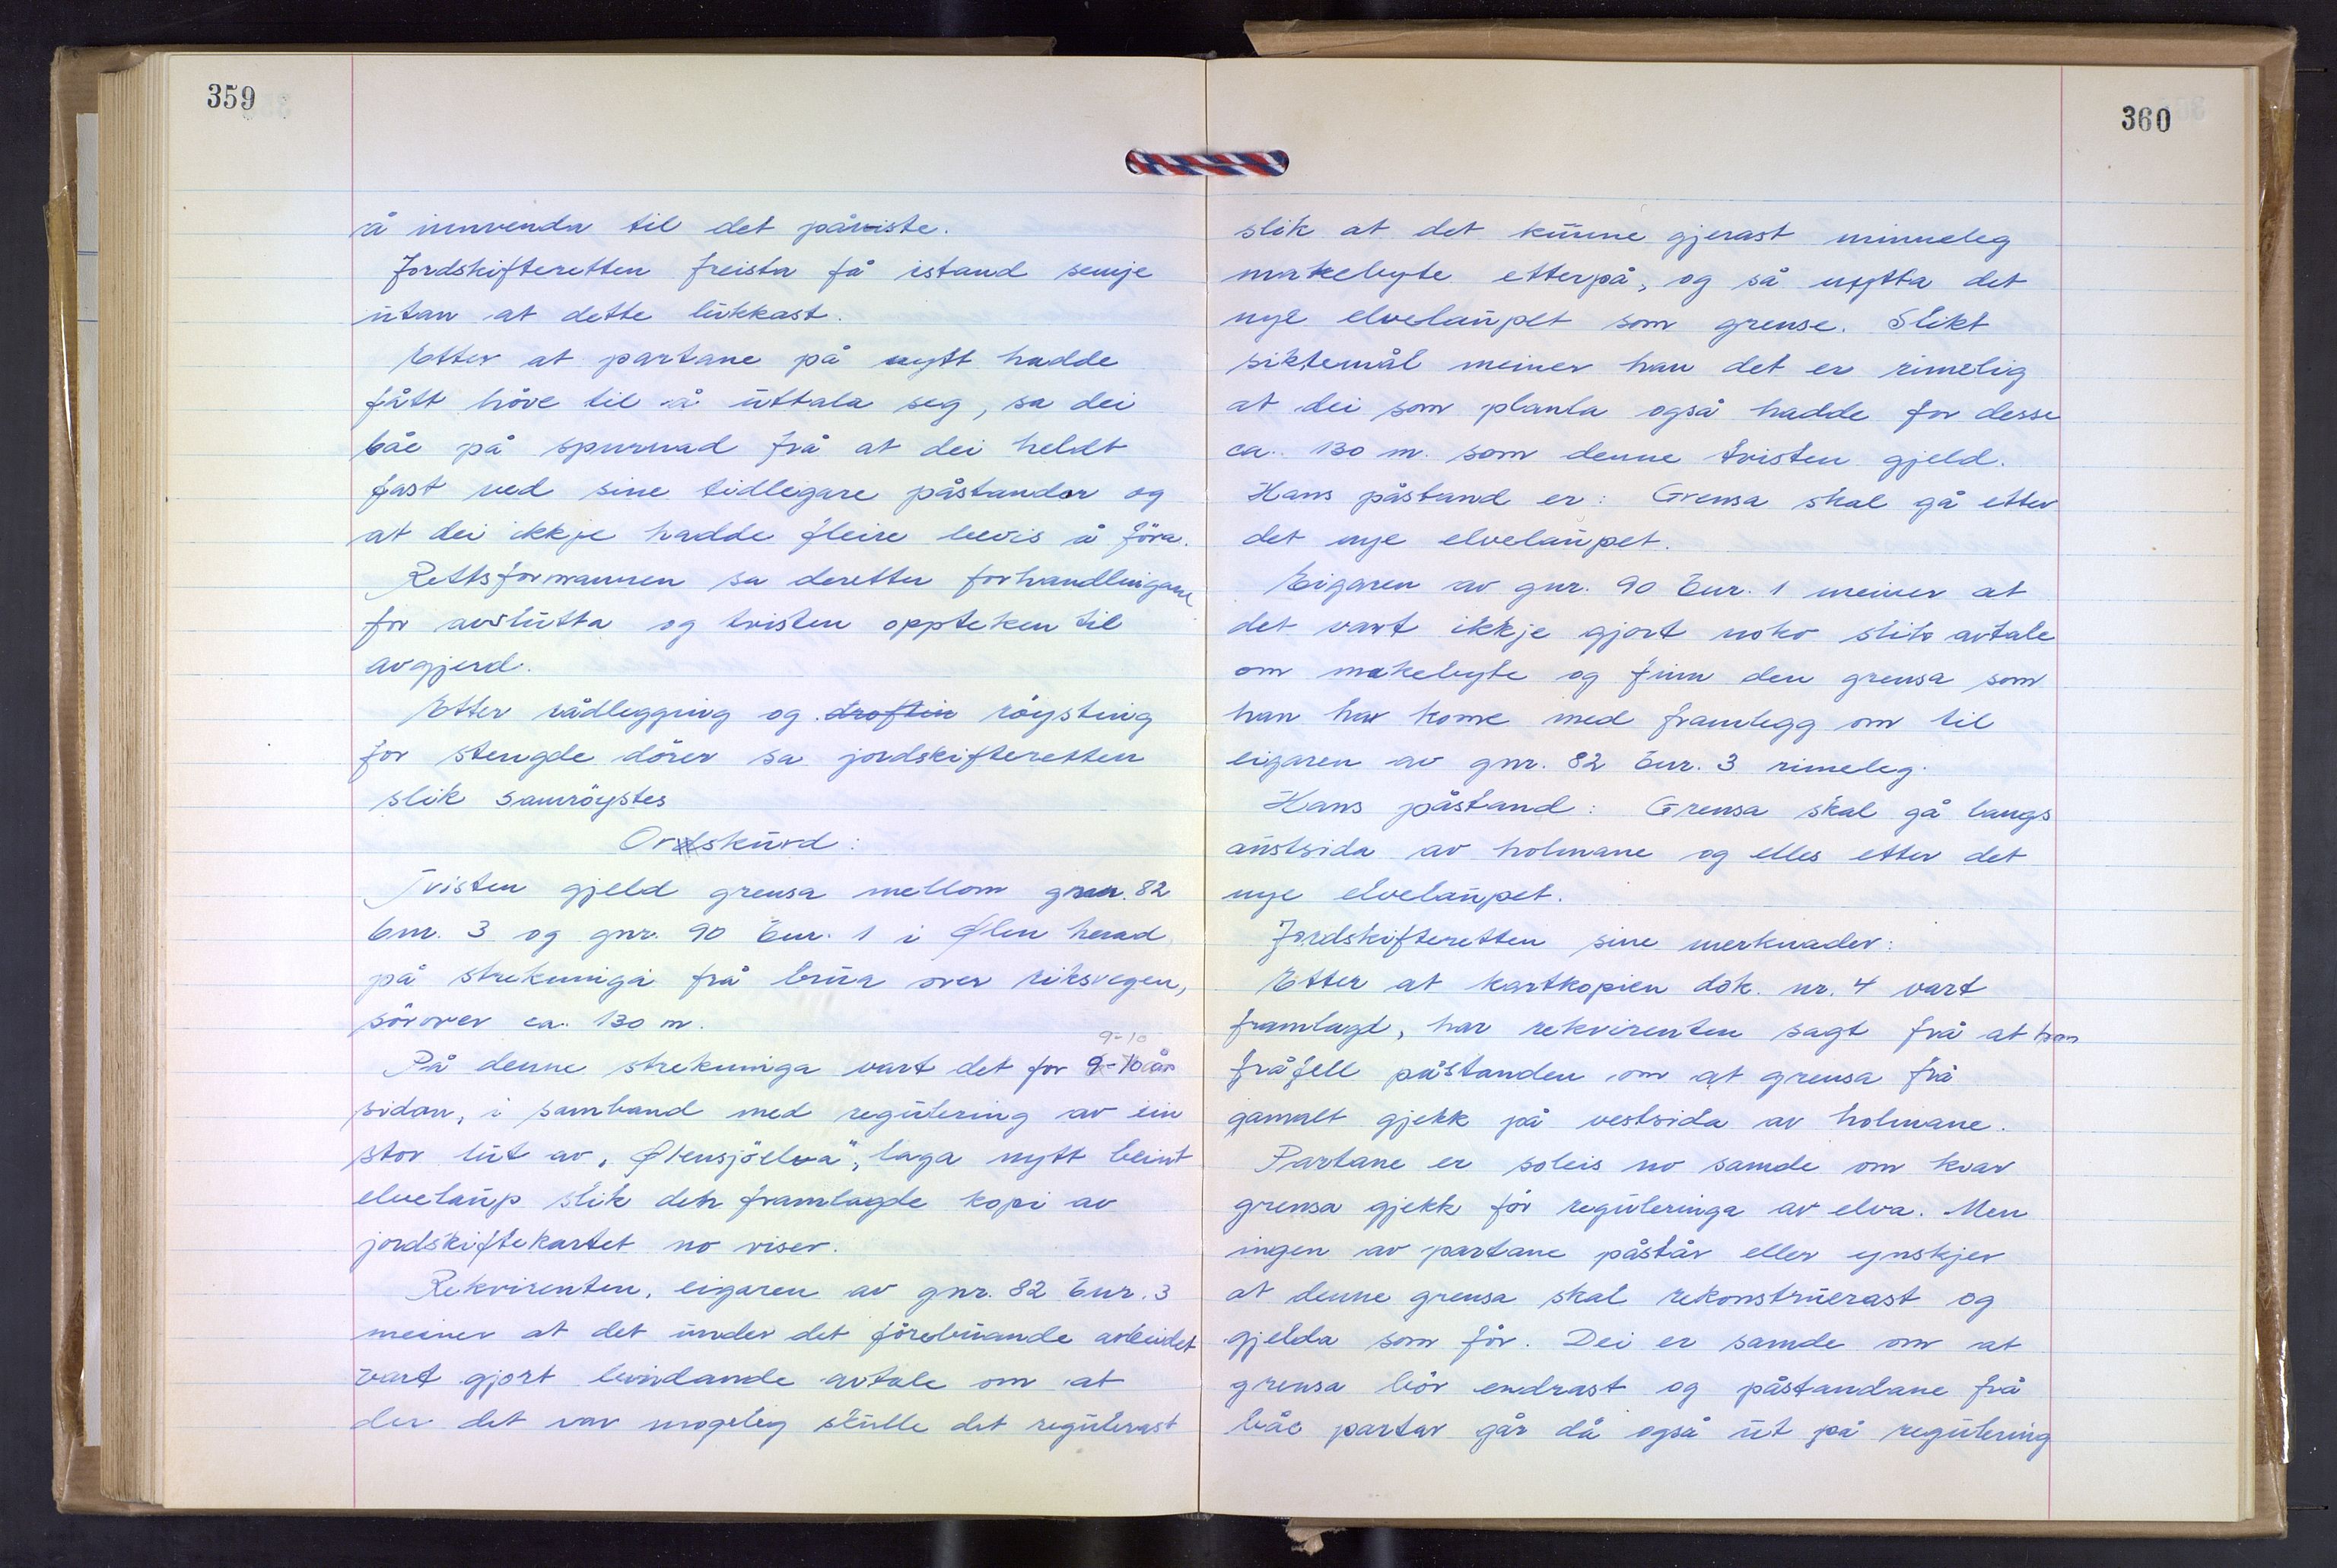 359
å innvenda til det påviste.
Jordskifteretten freista få istand semje
utan at dette lukkast.
Etter at partane på nytt hadde
fått höve til å uttala seg, sa dei
båe på spurnad frå at dei heldt
fast ved sine tidlegare påstandar og
at dei ikkje hadde fleire bevis å föra.
Rettsformannen sa deretter forhandlingane
for avslutta og tvisten oppteken til
avgjerd.
Etter rådlegging og droftin röysting
for stengde dörer sa jordskifteretten
slik samröystes
Ordskurd:
Tvisten gjeld grensa mellom gnr. 82
bnr. 3 og gnr. 90 bnr. 1 i Ølen herad
på strekninga frå brua over riksvegen,
sörover ca. 130 m.
9-10
På denne strekninga vart det for 9-10 år
sidan, i samband med regulering av ein
stor lut av „Ølensjöelva", laga nytt beint
elvelaup slik den framlagde kopi av
jordskiftekartet no viser.
Rekvirenten, eigaren av gnr. 82 bnr. 3
meiner at det under det förebuande arbeidet
vart gjort bindande avtale om at
der det var mogeleg skulle det regulerast
360
slik at det kunne gjerast minneleg
makebyte etterpå, og så nytta det
nye elvelaupet som grense. Slikt
siktemål meiner han det er rimelig
at dei som planla også hadde for desse
ca. 130 m. som denne tvisten gjeld.
Hans påstand er: Grensa skal gå etter
det nye elvelaupet.
Eigaren av gnr. 90 bnr. 1 meiner at
det vart ikkje gjort noko slik avtale
om makebyte og finn den grensa som
han har kome med framlegg om til
eigaren av gnr. 82 bnr. 3 rimeleg.
Hans påstand: Grensa skal gå langs
austsida av holmane og elles etter det
nye elvelaupet.
Jordskifteretten sine merknader:
Etter at kartkopien dok. nr. 4 vart
framlagt, har rekvirenten sagt frå at han
fråfell påstanden om at grensa frå
gamalt gjekk på vestsida av holmane.
Partane er soleis no samde om kvar
grensa gjekk för reguleringa av elva. Men
ingen av partane påstår eller ynskjer
at denne grensa skal rekonstruerast og
gjelda som för. Dei er samde om at
grensa bör endrast og påstandane frå
båe partar går då også ut på regulering